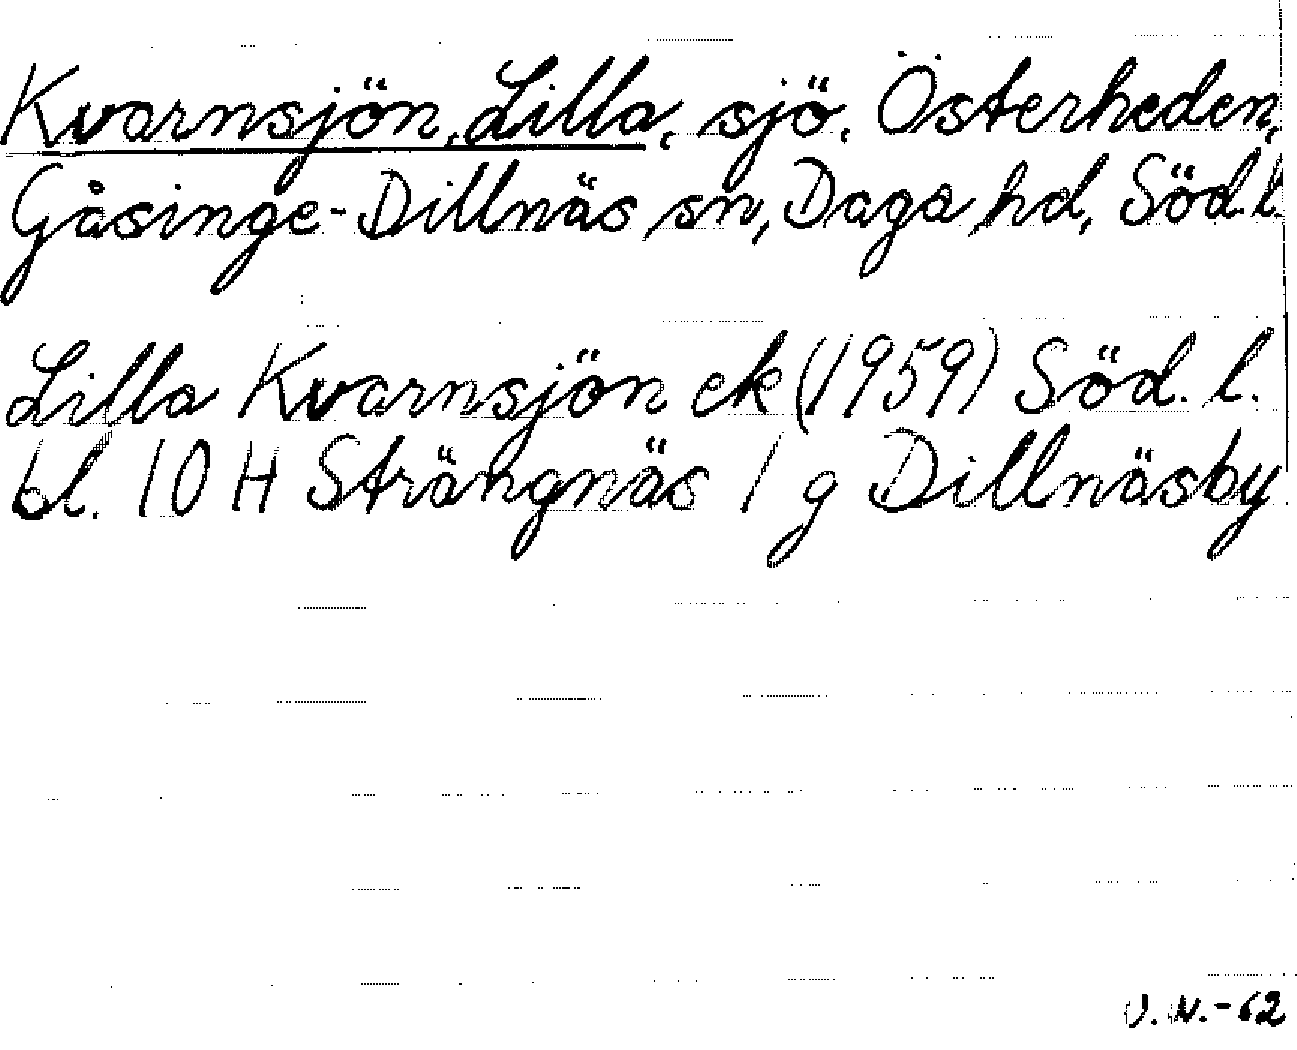 Kvarnsjön, Lilla, sjö, Österheden,
Gåsinge-Dillnäs sn, Daga hd, Söd.l.
Lilla Kvarnsjön ek (1959) Söd. l.
bl. 10 H Strängnäs 1 g Dillnäsby
V. N. -62